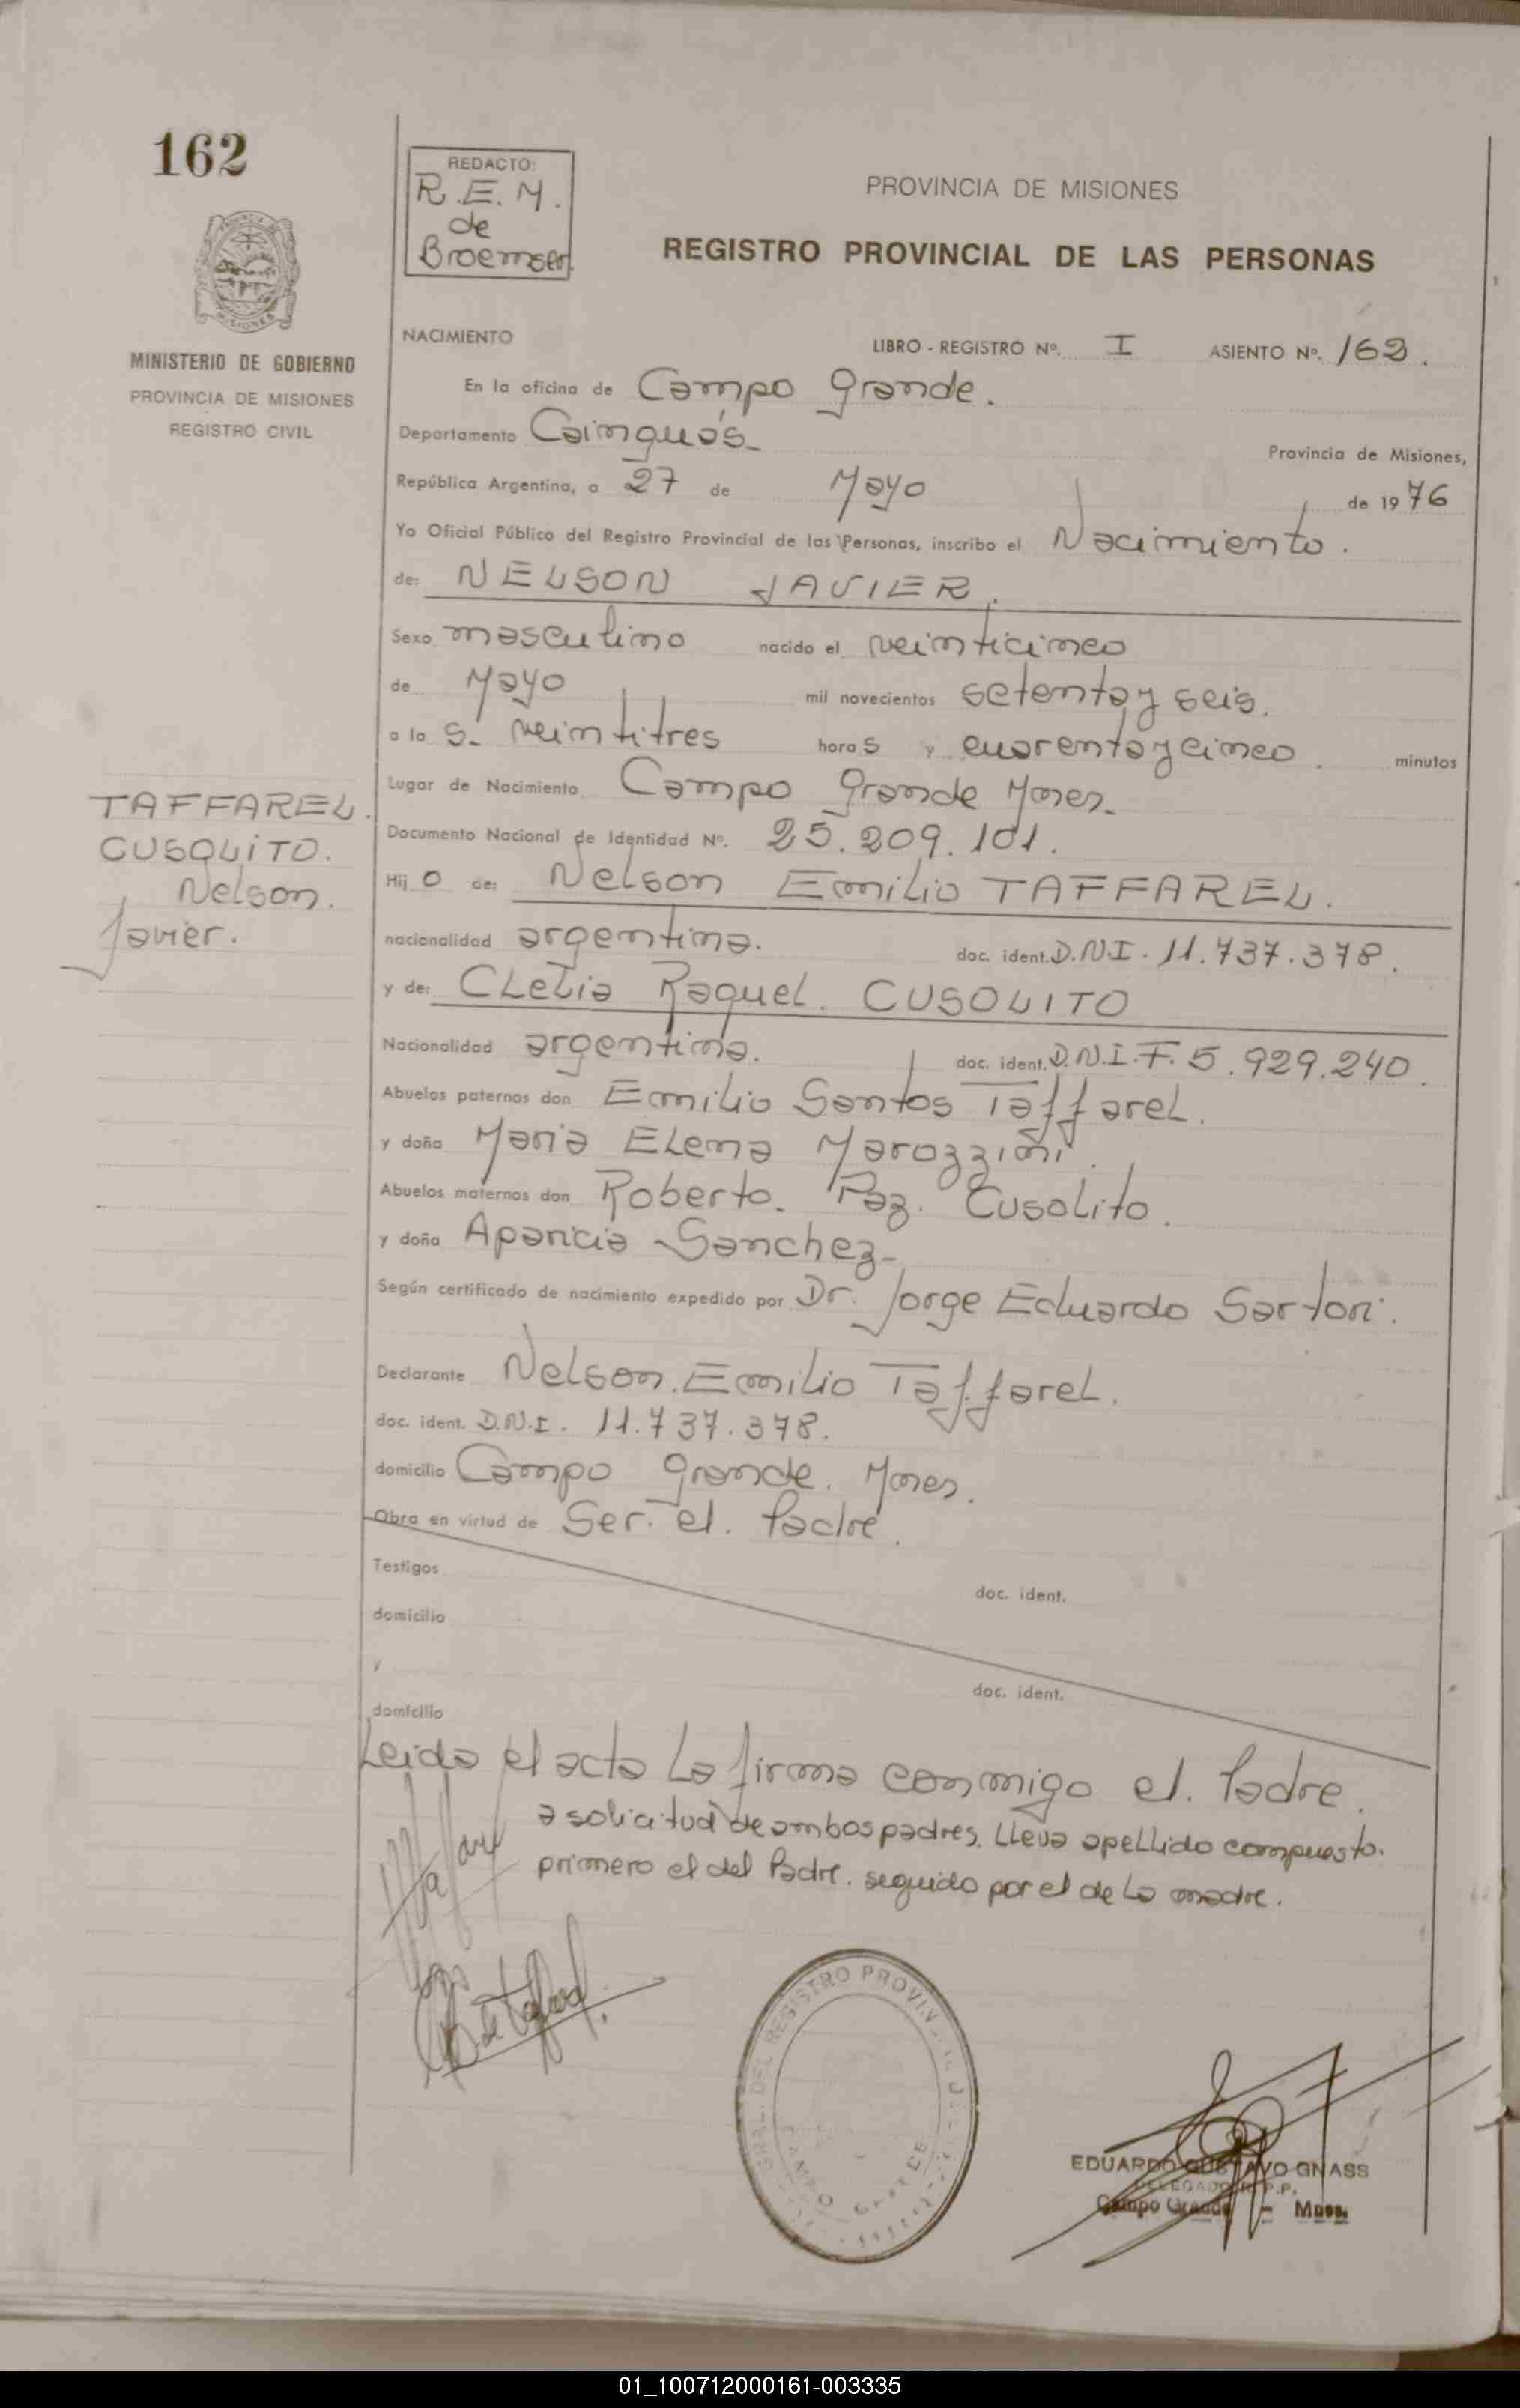 162
REDACTO:
R.E.M.
de
Broemser.
PROVINCIA DE MISIONES
REGISTRO PROVINCIAL DE LAS PERSONAS
MINISTERIO DE GOBIERNO
PROVINCIA DE MISIONES
REGISTRO CIVIL
NACIMIENTO
LIBRO - REGISTRO Nº. I ASIENTO Nº. 162.
En la oficina de Campo Grande.
Departamento Cainguás-
Provincia de Misiones,
República Argentina, a 27 de Mayo de 1976
Yo Oficial Público del Registro Provincial de las Personas, inscribo el Nacimiento.
de: NELSON JAVIER.
Sexo masculino nacido el veinticinco
de Mayo mil novecientos setenta y seis.
a la s. veintitres hora s y cuarenta y cinco. minutos
Lugar de Nacimiento Campo Grande Mnes.
TAFFAREL.
CUSOLITO.
Nelson.
Javier.
Documento Nacional de Identidad Nº. 25.209.101.
Hij o de: Nelson Emilio TAFFAREL.
nacionalidad argentina. doc. ident. D.N.I. 11.737.378.
y de: CLelia Raquel. CUSOLITO
Nacionalidad argentina. doc. ident. D.N.I.F. 5.929.240.
Abuelos paternos don Emilio Santos Taffarel.
y doña Maria Elena Marozzini.
Abuelos maternos don Roberto. Paz. Cusolito.
y doña Aparicia Sanchez-
Según certificado de nacimiento expedido por Dr. Jorge Eduardo Sartori.
Declarante Nelson. Emilio Taffarel.
doc. ident. D.N.I. 11.737.378.
domicilio Campo Grande. Mnes.
Obra en virtud de Ser. el. Padre.
Testigos doc. ident.
domicilio
y doc. ident.
domicilio
Leida el acta La firma conmigo el. Padre.
a solicitud de ambos padres. LLeva apellido compuesto.
primero el del Padre. seguido por el de La madre.
REGISTRO PROVIN
CAMPO GRANDE
EDUARDO GUSTAVO GNASS
DELEGADO R.P.P.
Campo Grande - Mnes.
01_100712000161-003335